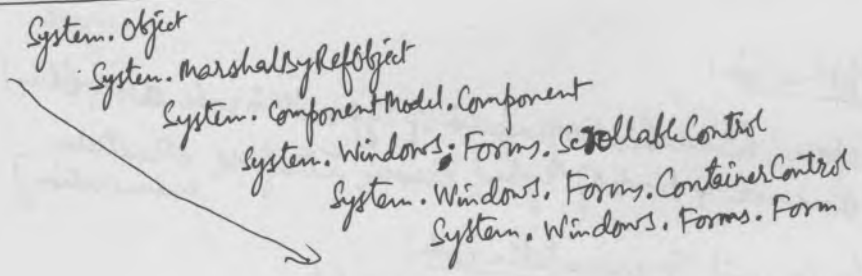 System. Object
System. MarshalByRefObject
System. ComponentModel. Component
System. Windows. Forms. ScrollableControl
System. Windows. Forms. ContainerControl
System. Windows. Forms. Form